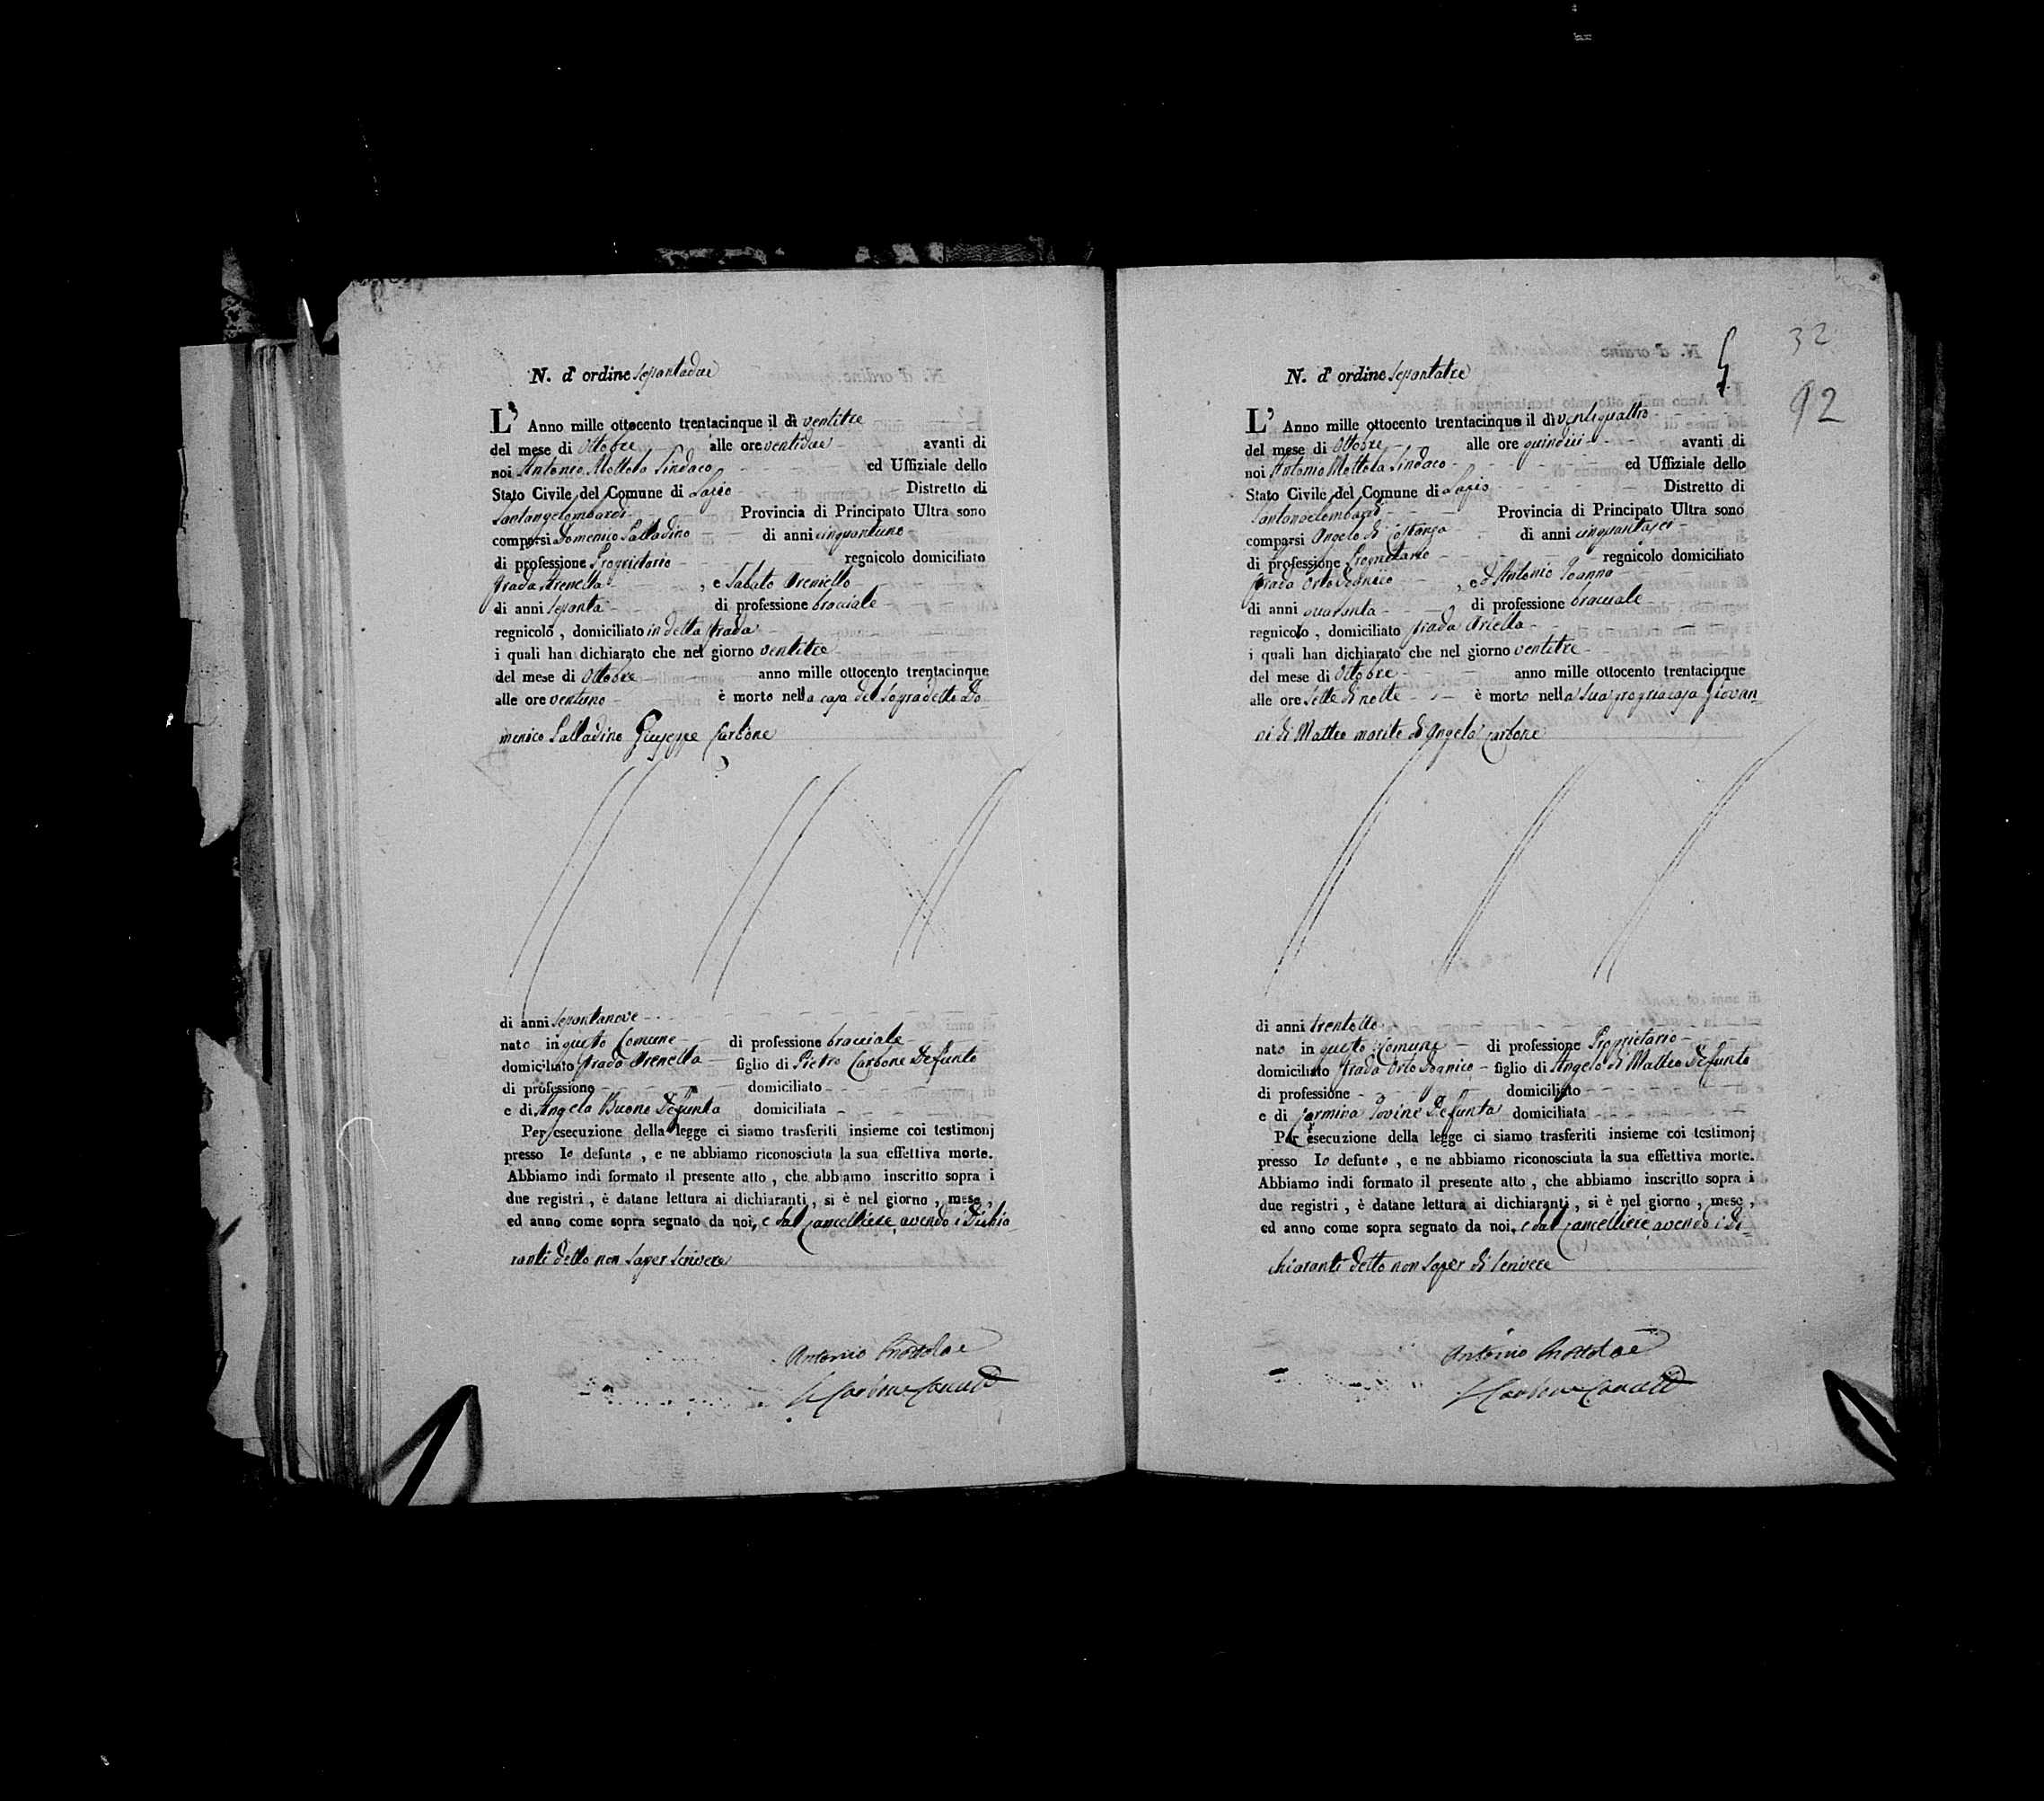 N. d' ordine sepantadue
L' Anno mille ottocento trentacinque il dì ventitre
del mese di Ottobre alle ore ventidue avanti di
noi Antonio Mottola Sindaco ed Uffiziale dello
Stato Civile del Comune di Lapio Distretto di
Santangelombardi Provincia di Principato Ultra sono
comparsi Domenico Palladino di anni cinquantuno
di professione Proprietario regnicolo domiciliato
strada Arenella , e Sabato
di anni sepanta di professione bracciale
regnicolo , domiciliato in detta strada
i quali han dichiarato che nel giorno ventitre
del mese di Ottobre anno mille ottocento trentacinque
alle ore ventuno è morto nella casa del sopradetto Do
menico Palladino Giuseppe Carbone
di anni sepantanove
nato in questo Comune di professione bracciale
domiciliato strada Arenella figlio di Pietro Carbone Defunto
di professione domiciliato
e di Angela Buono Defunta domiciliata
Per esecuzione della legge ci siamo trasferiti insieme coi testimonj
presso lo defunto , e ne abbiamo riconosciuta la sua effettiva morte.
Abbiamo indi formato il presente atto , che abbiamo inscritto sopra i
due registri , è datane lettura ai dichiaranti , si è nel giorno , mese ,
ed anno come sopra segnato da noi, e dal Cancelliere, avendo i Dichia
ranti detto non saper scrivere
Antonio Mottola
Carbone Cancell
32
92
N. d' ordine sepantatre
L' Anno mille ottocento trentacinque il dì ventiquattro
del mese di Ottobre alle ore quindici avanti di
noi Antonio Mottola Sindaco ed Uffiziale dello
Stato Civile del Comune di Lapio Distretto di
Santangelombardi Provincia di Principato Ultra sono
comparsi Angelo di Costanzo di anni cinquantasei
di professione Proprietario regnicolo domiciliato
strada Ortodonico , e d'Antonio Joanna
di anni quaranta di professione bracciale
regnicolo , domiciliato strada Ariella
i quali han dichiarato che nel giorno ventitre
del mese di Ottobre anno mille ottocento trentacinque
alle ore sette di notte è morto nella sua propria casa Giovan
ni di Matteo marito di Angela Carbone
di anni trentotto
nato in questo Comune di professione Proprietario
domiciliato strada Ortodonico figlio di Angelo di Matteo Defunto
di professione domiciliato
e di Carmina Iovine Defunta domiciliata
Per esecuzione della legge ci siamo trasferiti insieme coi testimonj
presso lo defunto , e ne abbiamo riconosciuta la sua effettiva morte.
Abbiamo indi formato il presente atto , che abbiamo inscritto sopra i
due registri , è datane lettura ai dichiaranti , si è nel giorno , mese ,
ed anno come sopra segnato da noi, e dal Cancelliere, avendo i Di
chiaranti detto non saper di scrivere
Antonio Mottola
Carbone Cancell